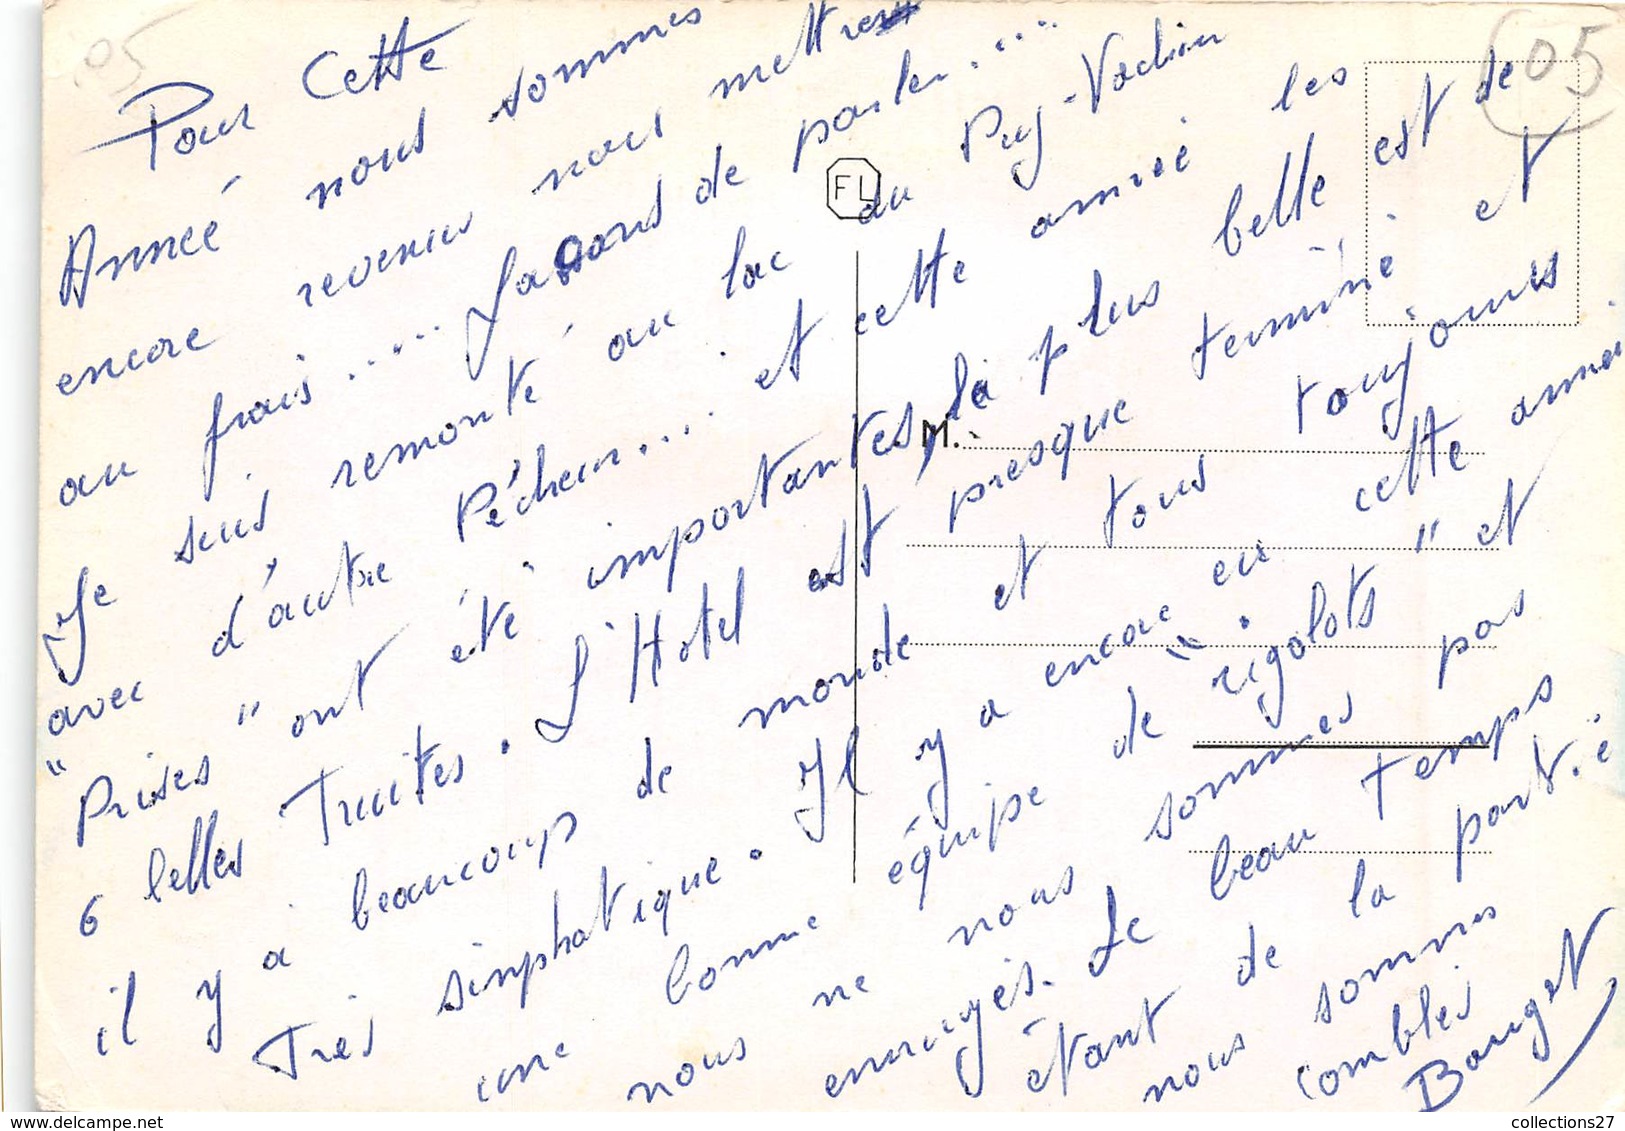 05
05
FL
M.
Pour Cette
Année nous sommes
encore revenus nous mettre
au frais.... de parler....
Je suis remonté au lac du Puy-
avec d'autre Pêcheur.... et cette année les
"Prises" ont été importantes, la plus belle est de
6 belles Truites. L'Hotel est presque terminé et
il y a beaucoup de monde et tous toujours
Très simphatique. Il y a encore eu cette année.
une bonne équipe de "rigolots" et
nous ne nous sommes pas
ennuyés. Le beau Temps
étant de la partie
nous sommes
comblés
Bouget
collections27